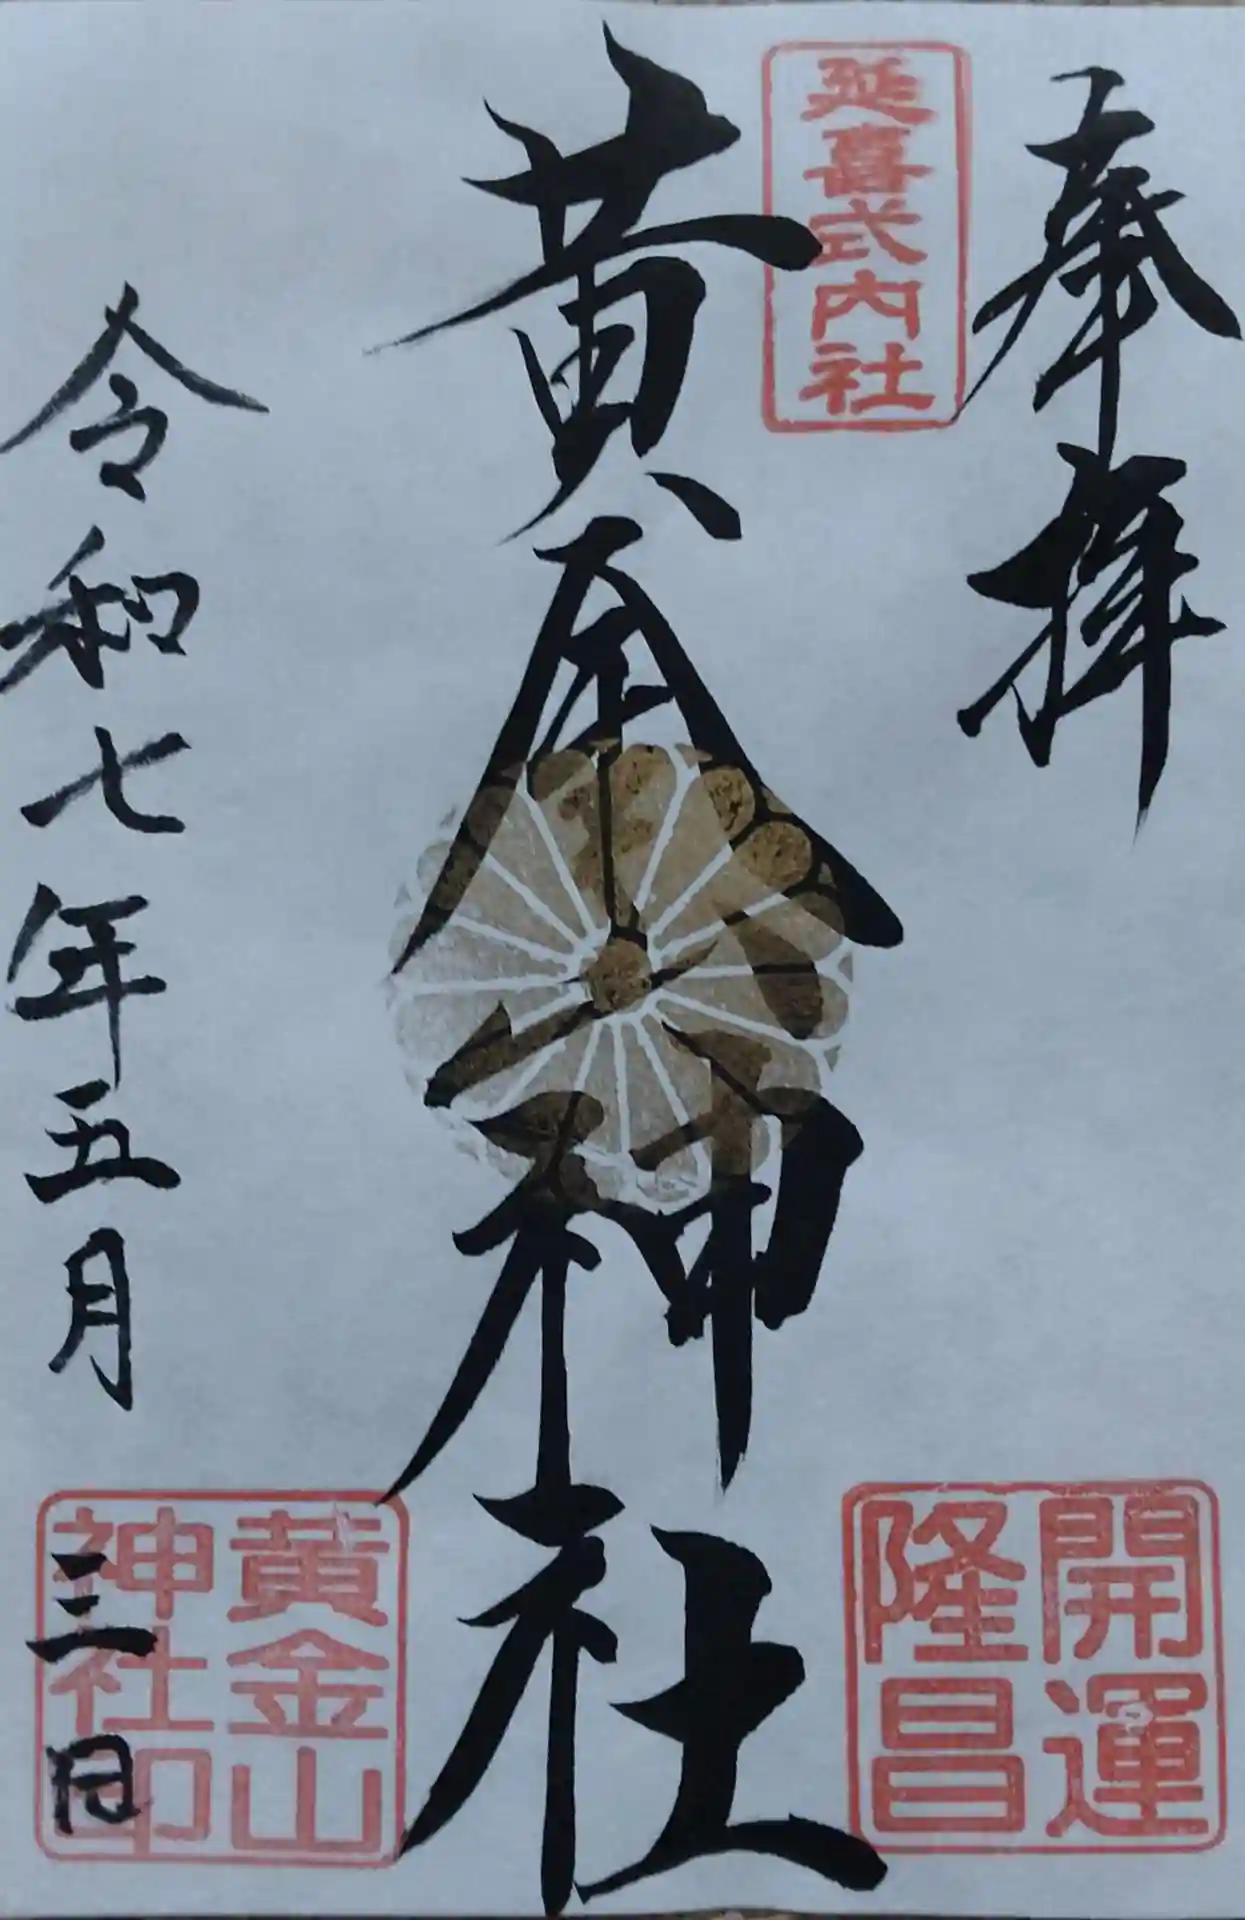 奉拝
延喜式内社
開運
隆昌
黄金神社
黄金山
神社印
令和七年五月三日